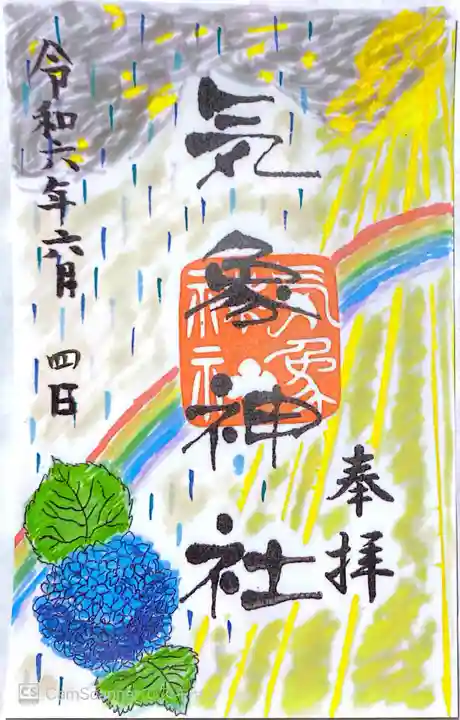 奉拝
気象神社
気象
神社
令和六年六月 四日
CS CamScanner